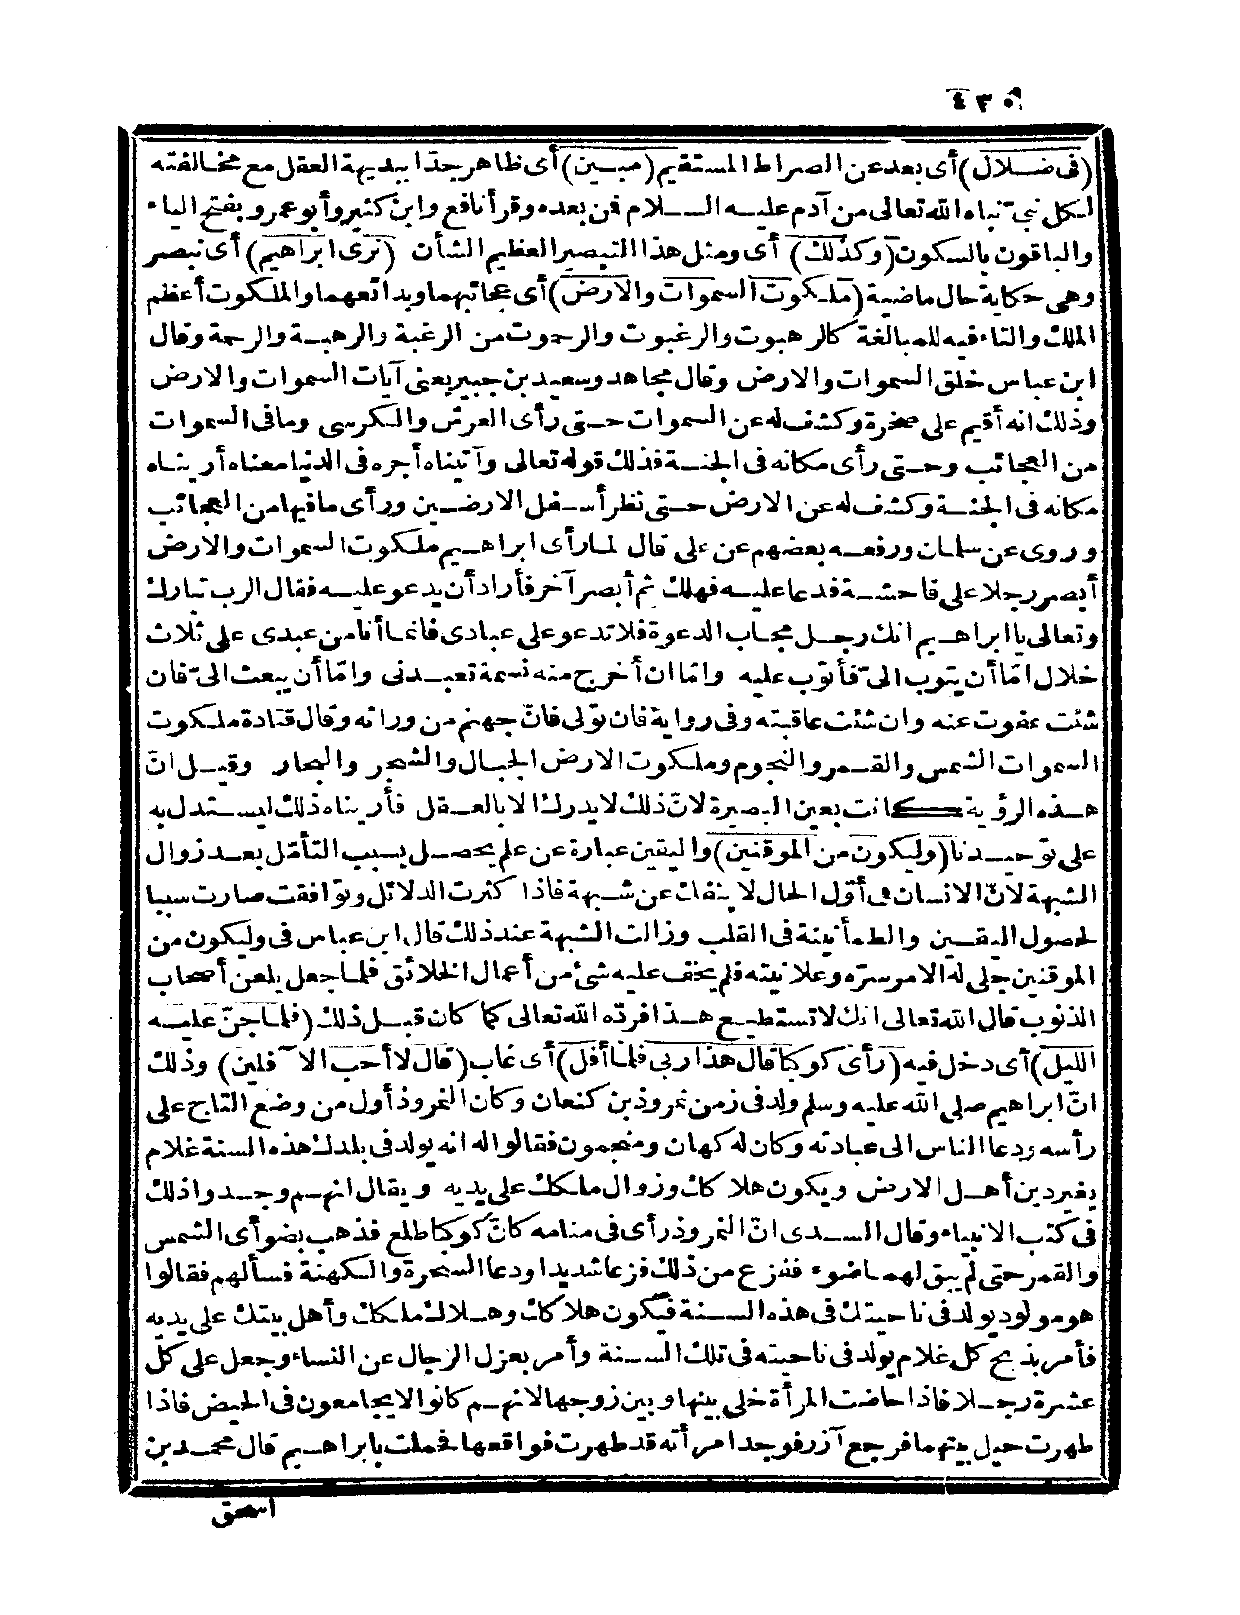 ٤٣٥
(في ضلال) أى بعد عن الصراط المستقيم (مبين) أى ظاهر جدّا ببديهة العقل مع مخالفته
لكل نبىّ نبأه الله تعالى من آدم عليه السلام فمن بعده وقرأ نافع وابن كثير وأبو عمرو بفتح الياء
والباقون بالسكون (وكذلك) أى ومثل هذا التبصير العظيم الشأن (نرى ابراهيم) أى نبصر
وهى حكاية حال ماضية (ملكوت السموات والارض) أى عجائبهما وبدائعهما والملكوت أعظم
الملك والتاء فيه للمبالغة كالرهبوت والرغبوت والرحوت من الرغبة والرهبة والرحمة وقال
ابن عباس خلق السموات والارض وقال مجاهد وسعيد بن جبير يعنى آيات السموات والارض
وذلك انه أقيم على صخرة وكشف له عن السموات حتى رأى العرش والكرسى وما فى السموات
من العجائب وحتى رأى مكانه فى الجنة فذلك قوله تعالى وآتيناه أجره فى الدنيا معناه أريناه
مكانه فى الجنة وكشف له عن الارض حتى نظر أسفل الارضين ورأى ما فيها من العجائب
وروى عن سلمان ورفعه بعضهم عن على قال لما رأى ابراهيم ملكوت السموات والارض
أبصر رجلا على فاحشة فدعا عليه فهلك ثم أبصر آخر فأراد أن يدعو عليه فقال الرب تبارك
وتعالى يا ابراهيم انك رجل مجاب الدعوة فلا تدعو على عبادى فانما أنا من عبدى على ثلاث
خلال امّا أن يتوب الىّ فأتوب عليه وامّا ان أخرج منه نسمة تعبدنى وامّا أن يبعث الىّ فان
شئت عفوت عنه وان شئت عاقبته وفى رواية فان تولى فانّ جهنم من ورائه وقال قتادة ملكوت
السموات الشمس والقمر والنجوم وملكوت الارض الجبال والشجر والبحار وقيل انّ
هذه الرؤية كانت بعين البصيرة لانّ ذلك لا يدرك الا بالعقل فأريناه ذلك ليستدل به
على توحيدنا (وليكون من الموقنين) واليقين عبارة عن علم يحصل بسبب التأمّل بعد زوال
الشبهة لانّ الانسان فى أوّل الحال لا ينفك عن شبهة فاذا كثرت الدلائل وتوافقت صارت سببا
لحصول اليقين والطمأنينة فى القلب وزالت الشبهة عند ذلك قال ابن عباس فى وليكون من
الموقنين جلى له الامر سرّه وعلانيته فلم يخف عليه شئ من أعمال الخلائق فلما جعل يلعن أصحاب
الذنوب قال الله تعالى انك لا تستطيع هذا فردّه الله تعالى كما كان قبل ذلك (فلما جنّ عليه
الليل) أى دخل فيه (رأى كوكبا قال هذا ربى فلما أفل) أى غاب (قال لا أحب الآفلين) وذلك
انّ ابراهيم صلى الله عليه وسلم ولد فى زمن نمروذ بن كنعان وكان النمروذ أول من وضع التاج على
رأسه ودعا الناس الى عبادته وكان له كهان ومنجمون فقالوا له انه يولد فى بلدك هذه السنة غلام
يغير دين أهل الارض ويكون هلاكك وزوال ملكك على يديه ويقال انهم وجدوا ذلك
فى كتب الانبياء وقال السدى انّ النمروذ رأى فى منامه كانّ كوكبا طلع فذهب بضوأى الشمس
والقمر حتى لم يبق لهما ضوء ففزع من ذلك فزعا شديدا ودعا السحرة والكهنة فسألهم فقالوا
هو مولود يولد فى ناحيتك فى هذه السنة فيكون هلاكك وهلاك ملكك وأهل بيتك على يديه
فأمر بذبح كل غلام يولد فى ناحيته فى تلك السنة وأمر بعزل الرجال عن النساء وجعل على كلّ
عشرة رجلا فاذا حاضت المرأة خلى بينها وبين زوجها لانهم كانوا لا يجامعون فى الحيض فاذا
طهرت حيل بينهما فرجع آزر فوجد امرأته قد طهرت فواقعها فحملت بابراهيم قال محمد بن
اسحق